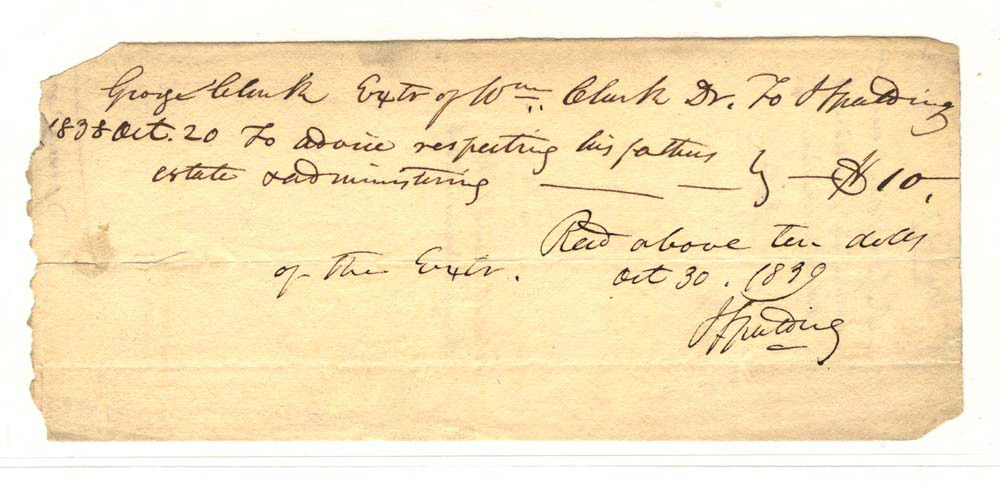 George Clark Extr of Wm Clark Dr. To J Spalding
1838 Oct. 20 To advice respecting his fathers
estate & administering — — } — $10.
Recd above ten dolls
of the Extr. Oct 30. 1839
J Spalding